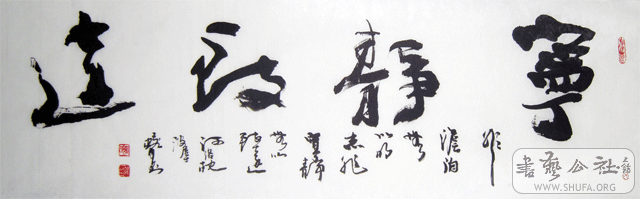 寧靜致遠
非
澹泊
無
以明
志非
寧靜
無以
致遠
書藝公社
WWW.SHUFA.ORG